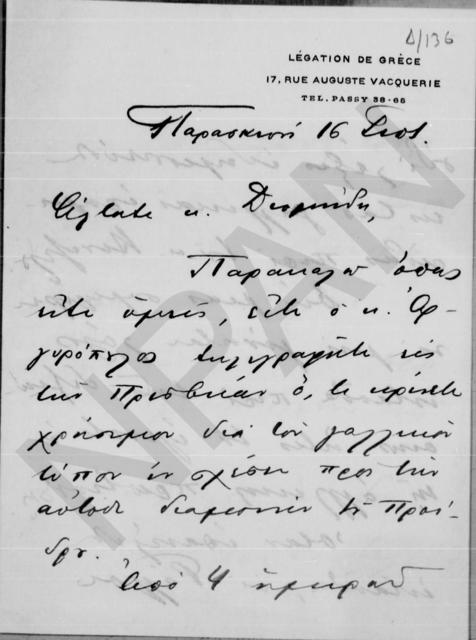 Δ/136
LÉGATION DE GRÈCE
17, RUE AUGUSTE VACQUERIE
TEL. PASSY 38-66
Παρασκευή 16 Σεπτ.
Φίλτατε κ. Διομήδη,
Παρακαλώ όπως
είτε υμείς, είτε ο κ. Αρ-
γυρόπουλος τηλεγραφήτε εις
την Πρεσβείαν ό,τι κρίνετε
χρήσιμον διά τον γαλλικόν
τύπον εν σχέσει προς την
αυτόθι διαμονήν του Προέ-
δρου.
Από 4 ημερών
NPAN